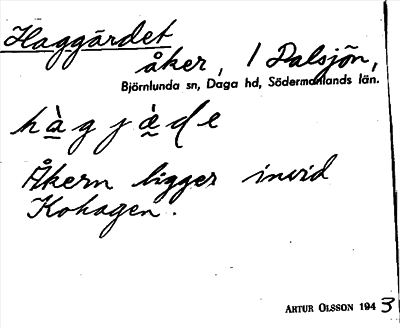 Haggärdet
åker, / Dalsjön,
Björnlunda sn, Daga hd, Södermanlands län.
hàgjàde
Åkern ligger invid
Kohagen.
ARTUR OLSSON 1943